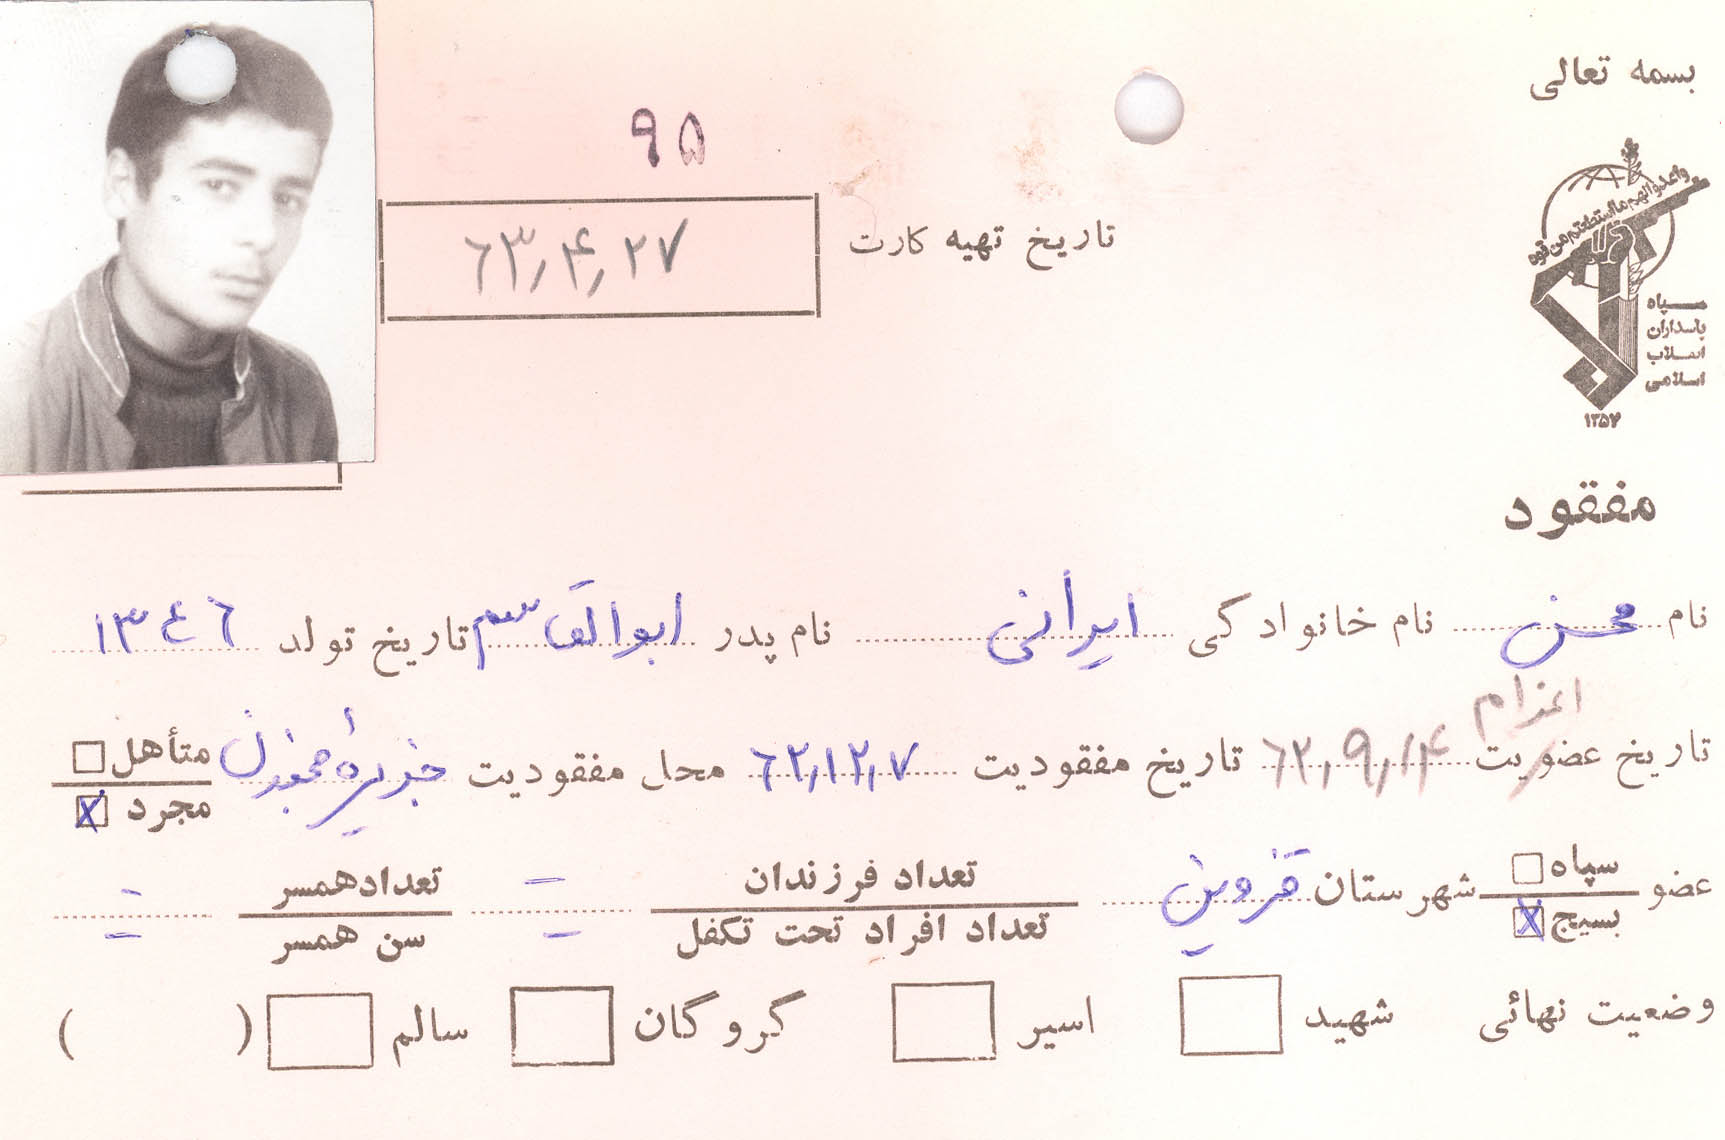 بسمه تعالی
۹۵
تاریخ تهیه کارت ۶۳٫۴٫۲۷
واعدوا لهم ما استطعتم من قوه
سپاه
پاسداران
انقلاب
اسلامی
۱۳۵۷
مفقود
نام محسن نام خانوادگی ایرانی نام پدر ابوالقاسم تاریخ تولد ۱۳۴۶
اعزام
تاریخ عضویت ۶۲٫۹٫۱۴ تاریخ مفقودیت ۶۲٫۱۲٫۷ محل مفقودیت جزیرهٔ مجنون متأهل
مجرد X
عضو سپاه شهرستان قزوین تعداد فرزندان - تعداد همسر -
بسیج X تعداد افراد تحت تکفل - سن همسر -
وضعیت نهائی شهید اسیر گروگان سالم ( )